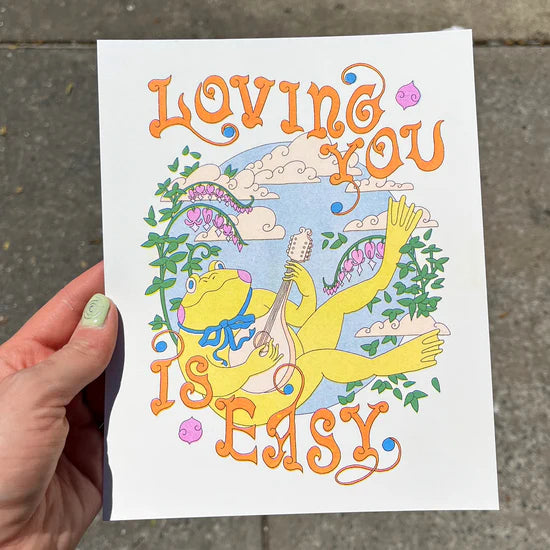 LOVING
YOU
IS
EASY